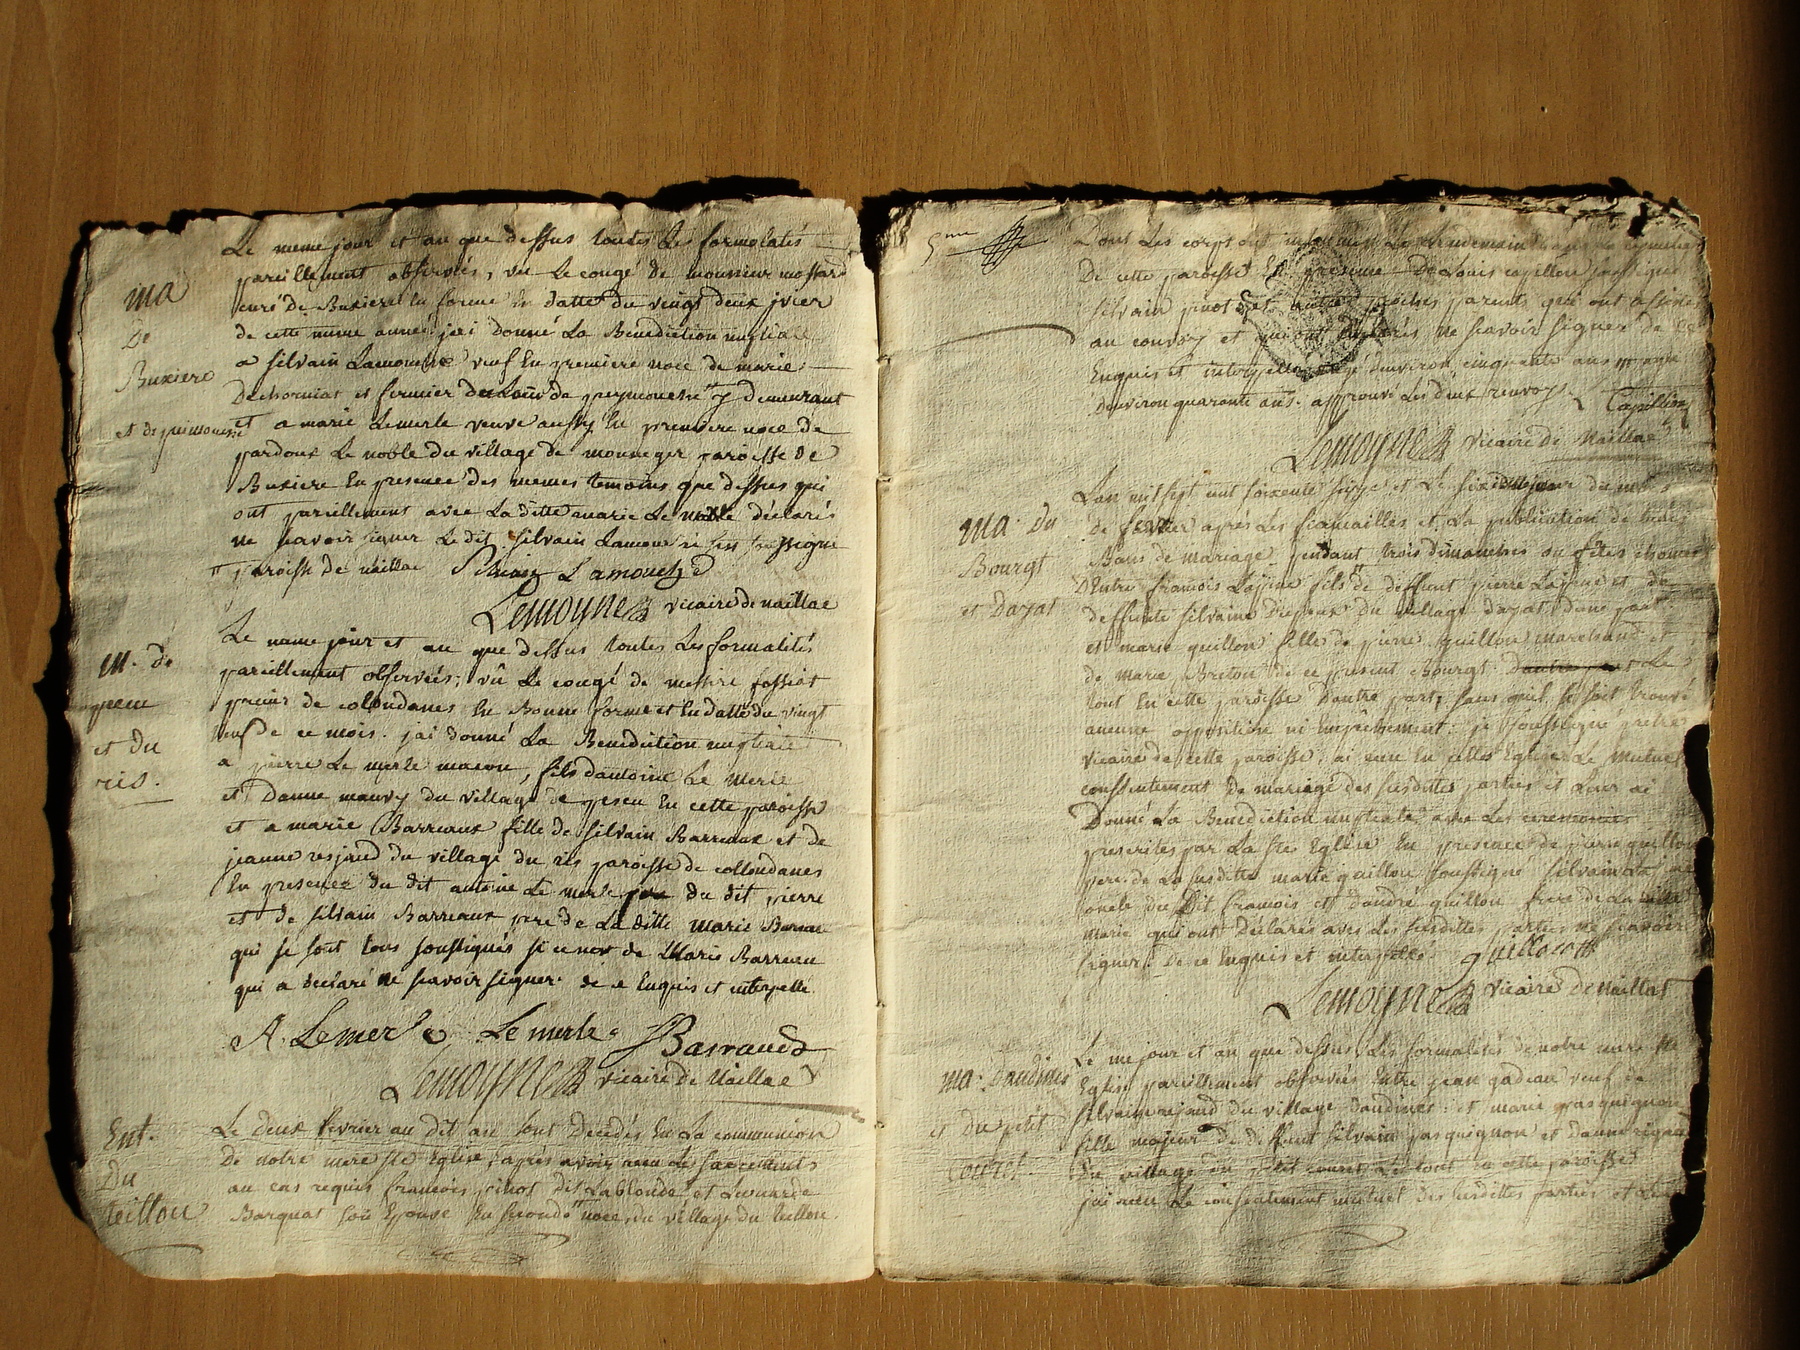 Le meme jour et an que dessus toutes les formalatés
pareillement observées, vu le congé de monsieur
ma
curé de Buxiere en forme en datte du vingt deux jvier
de cette meme année jai donné la Benediction nuptiale
De
a silvain Lamoureux veuf en premiere noce de marie
Buxiere
et fermier demeurant
et a marie Lemerle veuve aussy en premiere noce de
pardoux Le noble du village de paroisse de
Buxiere en presence des memes temoins que dessus qui
ont pareillement avec la ditte marie Le declarés
ne scavoir signer Le dit silvain
paroisse de naillac
Lemoyne vicaire de naillac
Le meme jour et an que dessus toutes les formalités
m. de
pareillement observées; vû Le congé de messire fossiot
peseu
prieur de colondanes en Bonne forme et en datte du vingt
et du
neuf de ce mois. jai donné La Benediction nuptiale
ris.
a pierre Le merle macon, fils dantoine Le Merle
et Danne mauvy du village de peseu en cette paroisse
et a marie Barreaux fille de silvain Barreaux et de
jeanne du village du ris paroisse de collondanes
En presence du dit antoine Le merle du dit pierre
et de silvain Barreaux pere de La ditte Marie Bareau
qui se sont tous soussignés si ce nest de Marie Barreau
qui a declaré ne scavoir signer de ce Enquis et interpellé
A. Lemerle Lemerle
Lemoyne vicaire de Naillac
Ent.
Le deux fevrier au dit an sont Decedés En La communion
De notre mere ste Eglise, apres avoir recu Les sacrements
Du
au cas requis francois pinot dit Lablonde et
teillou
son Epouse En seconde noce, du village du teillou.
5me
Dont Les corps ont Le lendemain
De cette paroisse En presence De Louis capillon soussigné
silvain pinot et autres proches parents qui ont assisté
au convoy et qui ont declarés ne scavoir signer de ce
Enquis et interpellé agé denviron cinquante ans
denviron quarante ans. approuvé Les deux renvoy.
Lemoyne vicaire de Naillac
Lan mil sept cent soixente et Le jour du mois
ma. du
de fevrier aprés Les fiancailles et La publication de trois
Bourgt
Bans de mariage pendant trois dimanches ou fêtes
Dentre francois Lajoine fils de deffunt pierre Lajoine et de
et Dazat
deffunte silvaine du village dazat dune part
et marie guillon fille de pierre guillon marchand et
de marie Breton de ce present Bourgt Le
tout En cette paroisse Dautre part, sans quil se soit trouvé
aucune opposition ni Empéchement: je soussigné pretre
vicaire de cette paroisse, ai recu En cette Eglise Le mutuel
consentement de mariage des susdittes parties et Leur ai
Donné La Benediction nuptiale avec Les ceremonies
prescrites par La ste Eglise En presence de pierre guillon
pere de La susditte marie guillon soussigné silvain
oncle du dit francois et dandré guillon frere de La
marie qui ont declarés avec Les susdittes parties ne scavoir
signer. De ce Enquis et interpellé.
Lemoyne vicaire de Naillac
Le me jour et an que dessus, Les formalités de notre mere ste
ma: Daudines
Eglise pareillement observées Entre jean gadeau veuf de
silvaine du village Daudines: et marie pasquignon
et Du petit
fille majeure de deffunt silvain pasquignon et danne
Couret
Du village du petit couret Le tout en cette paroisse
jai recu Le consentement mutuel des susdittes parties et